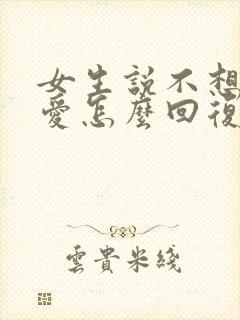 女生說不想
愛怎麼回復
雲貴米綫